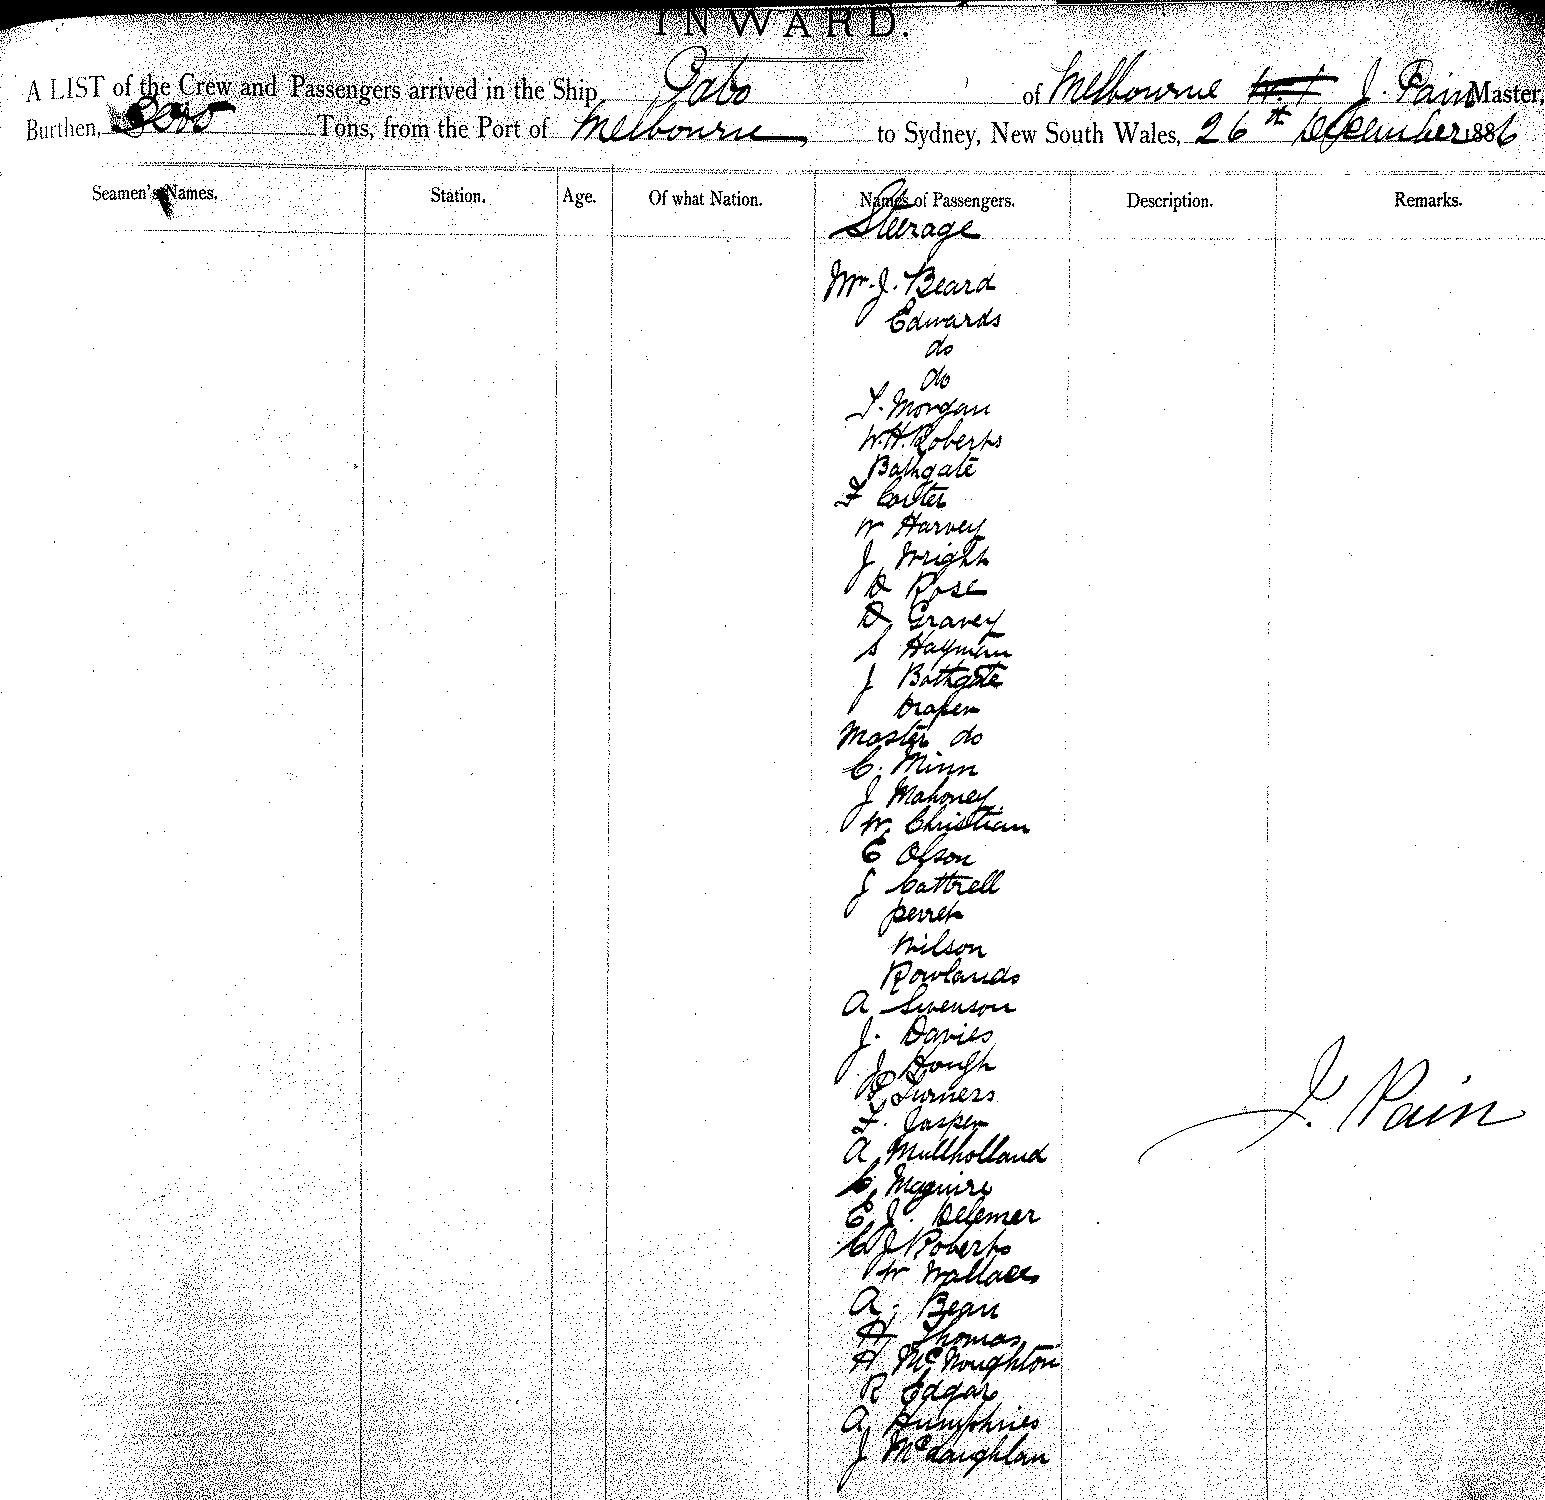 INWARD.
A LIST of the Crew and Passengers arrived in the Ship Gabo of Melbourne J. Pain Master,
Burthen, Tons, from the Port of Melbourne, to Sydney, New South Wales, 26th December 1886
Seamen's Names. Station. Age. Of what Nation. Names of Passengers. Description. Remarks.
Steerage
Mr. J. Beard
Edwards
do
do
T. Morgan
W.H. Roberts
Bathgate
F Coulter
W Harvey
J Wright
D Rose
D Gravey
S Hayman
J Bathgate
Draper
Master do
C. Minn
J Mahoney
W. Christian
E Olson
J Cattrell
Perret
Wilson
Rowlands
A Swenson
J. Davies
J Hough
Furness
F. Jasper
A Mullholland
C Maguire
E J. Delemer
C J Roberts
W Wallace
A. Bean
H Thomas
H McNoughton
R Edgar
A Humphries
J McLaughlan
J. Pain